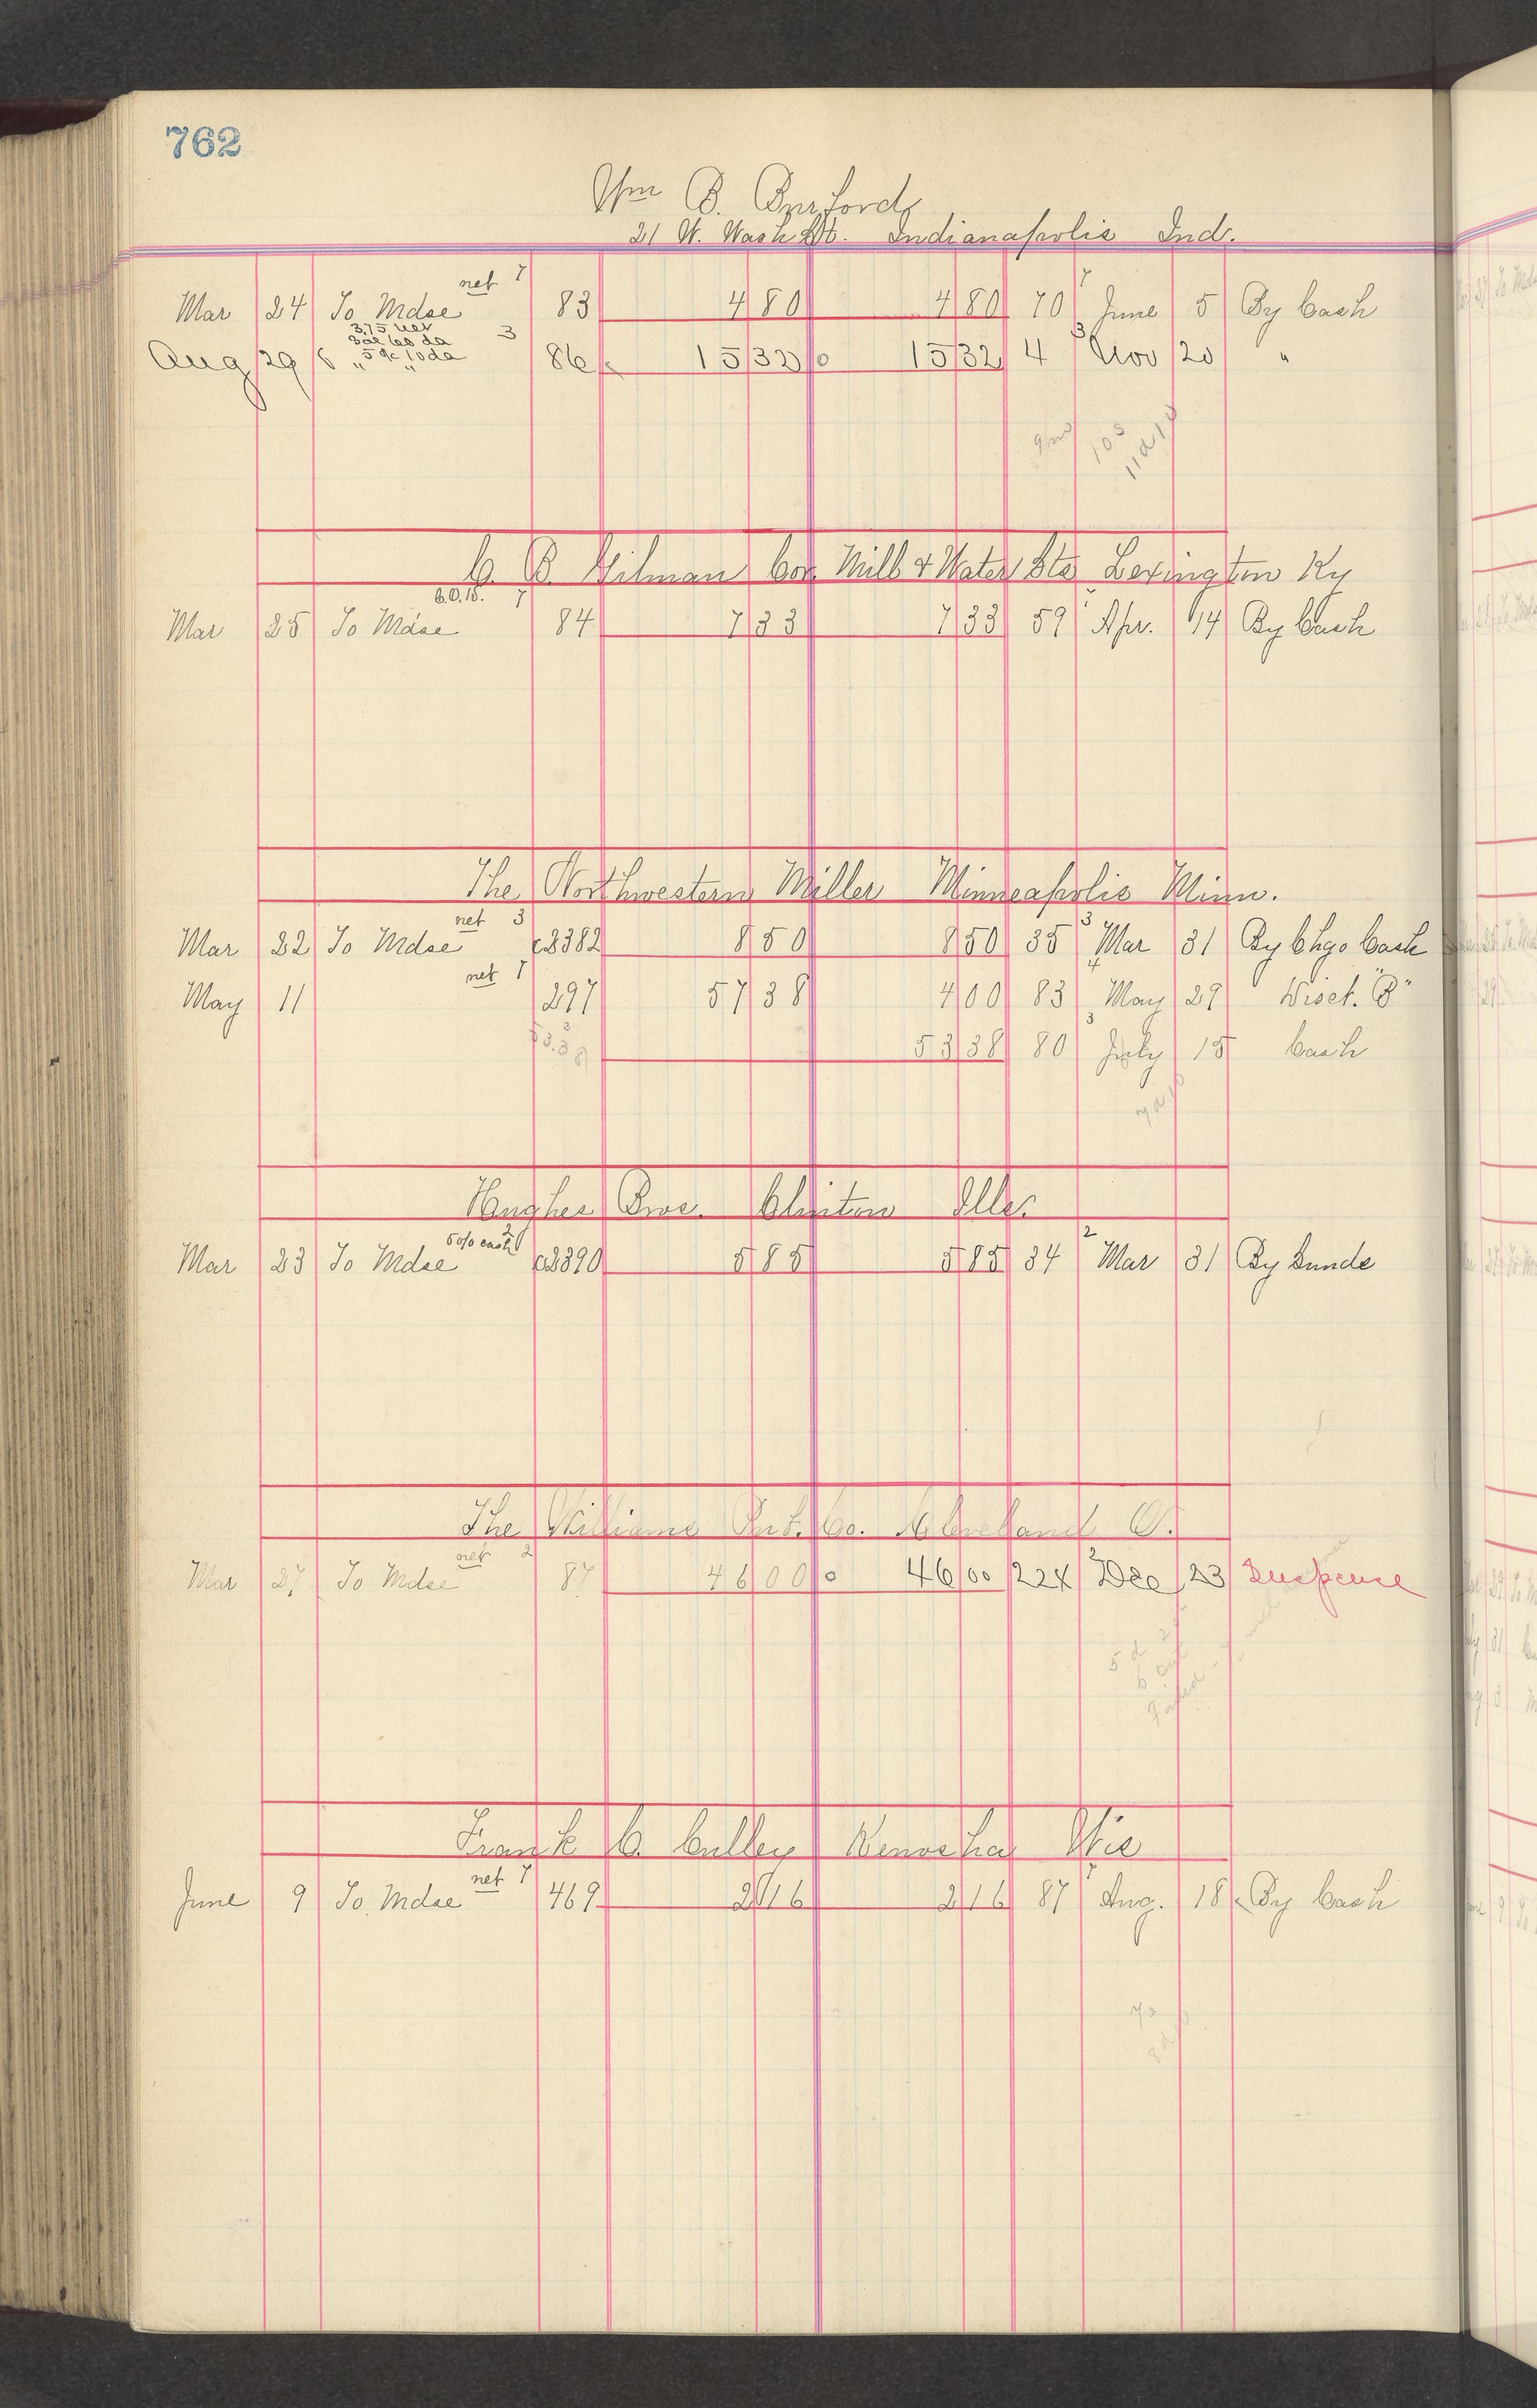 762
Wm B. Burford
21 W. Wash St. Indianapolis Ind.
net 7
Mar 24 To Mdse 83 4 80 4 80 70 7 June 5 By Cash
3.75 net 3
Bal 60 da
Aug 29 6 " 5 % 10 da 86 15 32 15 32 4 3 Nov 20 "
10 3
Gilman Cor. Mill & Water Sts Lexington Ky
C.O.D. 7
Mar 25 To Mdse 84 7 33 7 33 59 Apr. 14 By Cash
The Northwestern Miller Minneapolis Minn.
net 3
Mar 22 To Mdse 2382 8 50 8 50 35 3 Mar 31 By Chgo Cash
net 7
May 11 297 57 38 4 00 83 4 May 29 Disct. "B"
53.38 53 38 80 3 July 15 Cash
Hughes Bros. Clifton Ills
5% cash 2
Mar 23 To Mdse 2390 5 85 5 85 34 2 Mar 31 By Sunds
The Williams Pub. Co. Cleveland O.
net 2
Mar 27 To Mdse 87 46 00 46 00 224 2 Dec 23 Suspense
Frank Culley Kenosha Wis
net 7
June 9 To Mdse 469 2 16 2 16 87 7 Aug. 18 By Cash